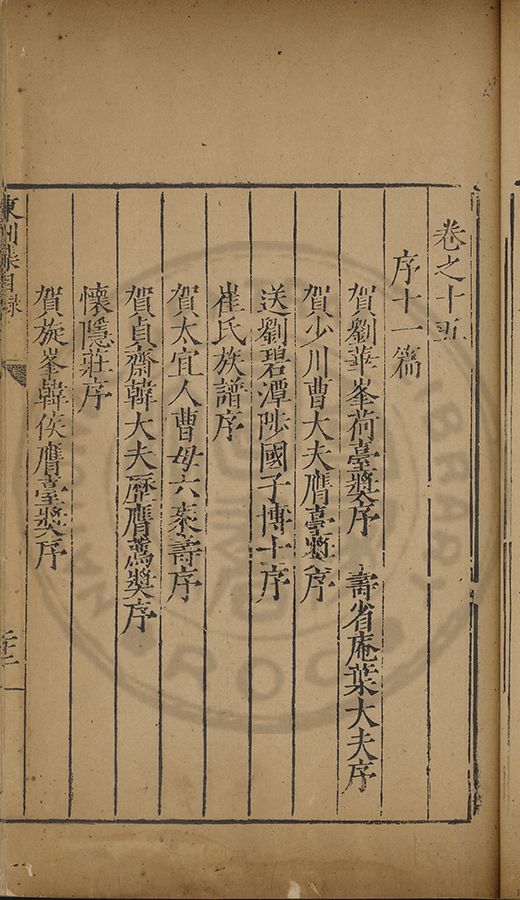 卷之十五
序十一篇
賀劉華峯荷臺奬序 壽省庵葉大夫序
賀少川曹大夫膺臺奬序
送劉碧潭陟國子博士序
崔氏族譜序
賀太宜人曹母六袠壽序
賀貞齋韓大夫歷膺薦奬序
懷隱莊序
賀旋峯韓侯膺臺奬序
東州集目録